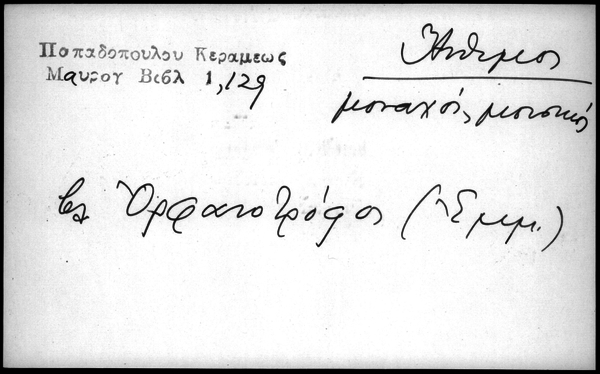 Παπαδοπουλου Κεραμεως
Μαυρογ Βιβλ 1,129
Ἄνθιμος
μοναχός, μουσικός
βλ Ὀρφανοτρόφος (Ἐμμ.)